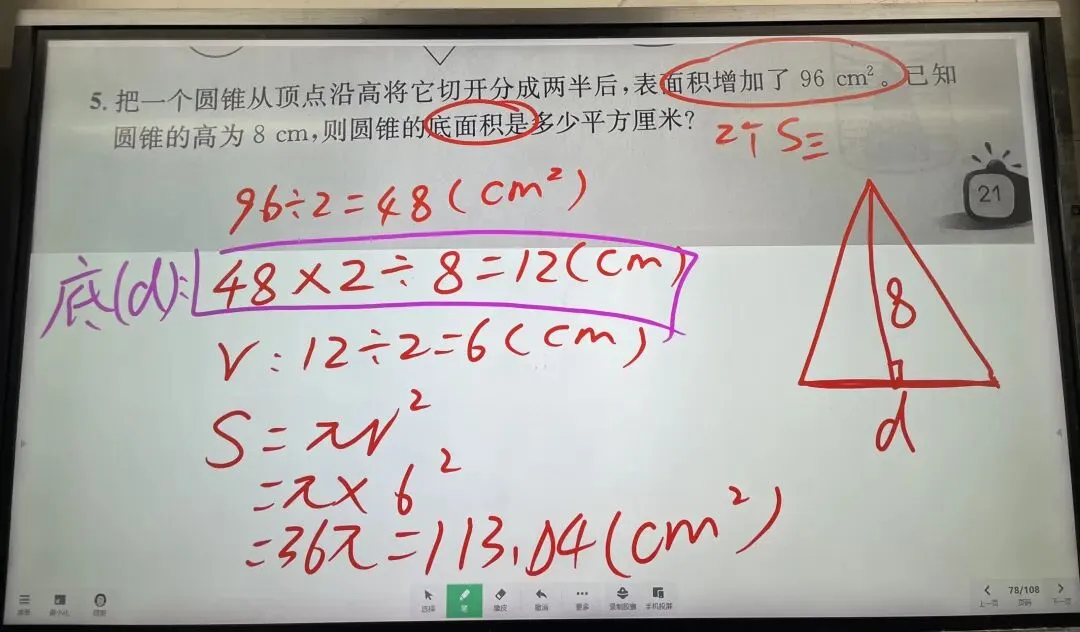 5. 把一个圆锥从顶点沿高将它切开分成两半后,表面积增加了 96 cm²。已知
圆锥的高为 8 cm,则圆锥的底面积是多少平方厘米?
2个 S
21
96÷2=48(cm²)
底(d): 48×2÷8=12(cm)
r:12÷2=6(cm)
8
d
S=πr²
=π×6²
=36π=113.04(cm²)
选择 笔 橡皮 撤消 更多 录制胶囊 手机投屏
上一页 78/108 页码 下一页